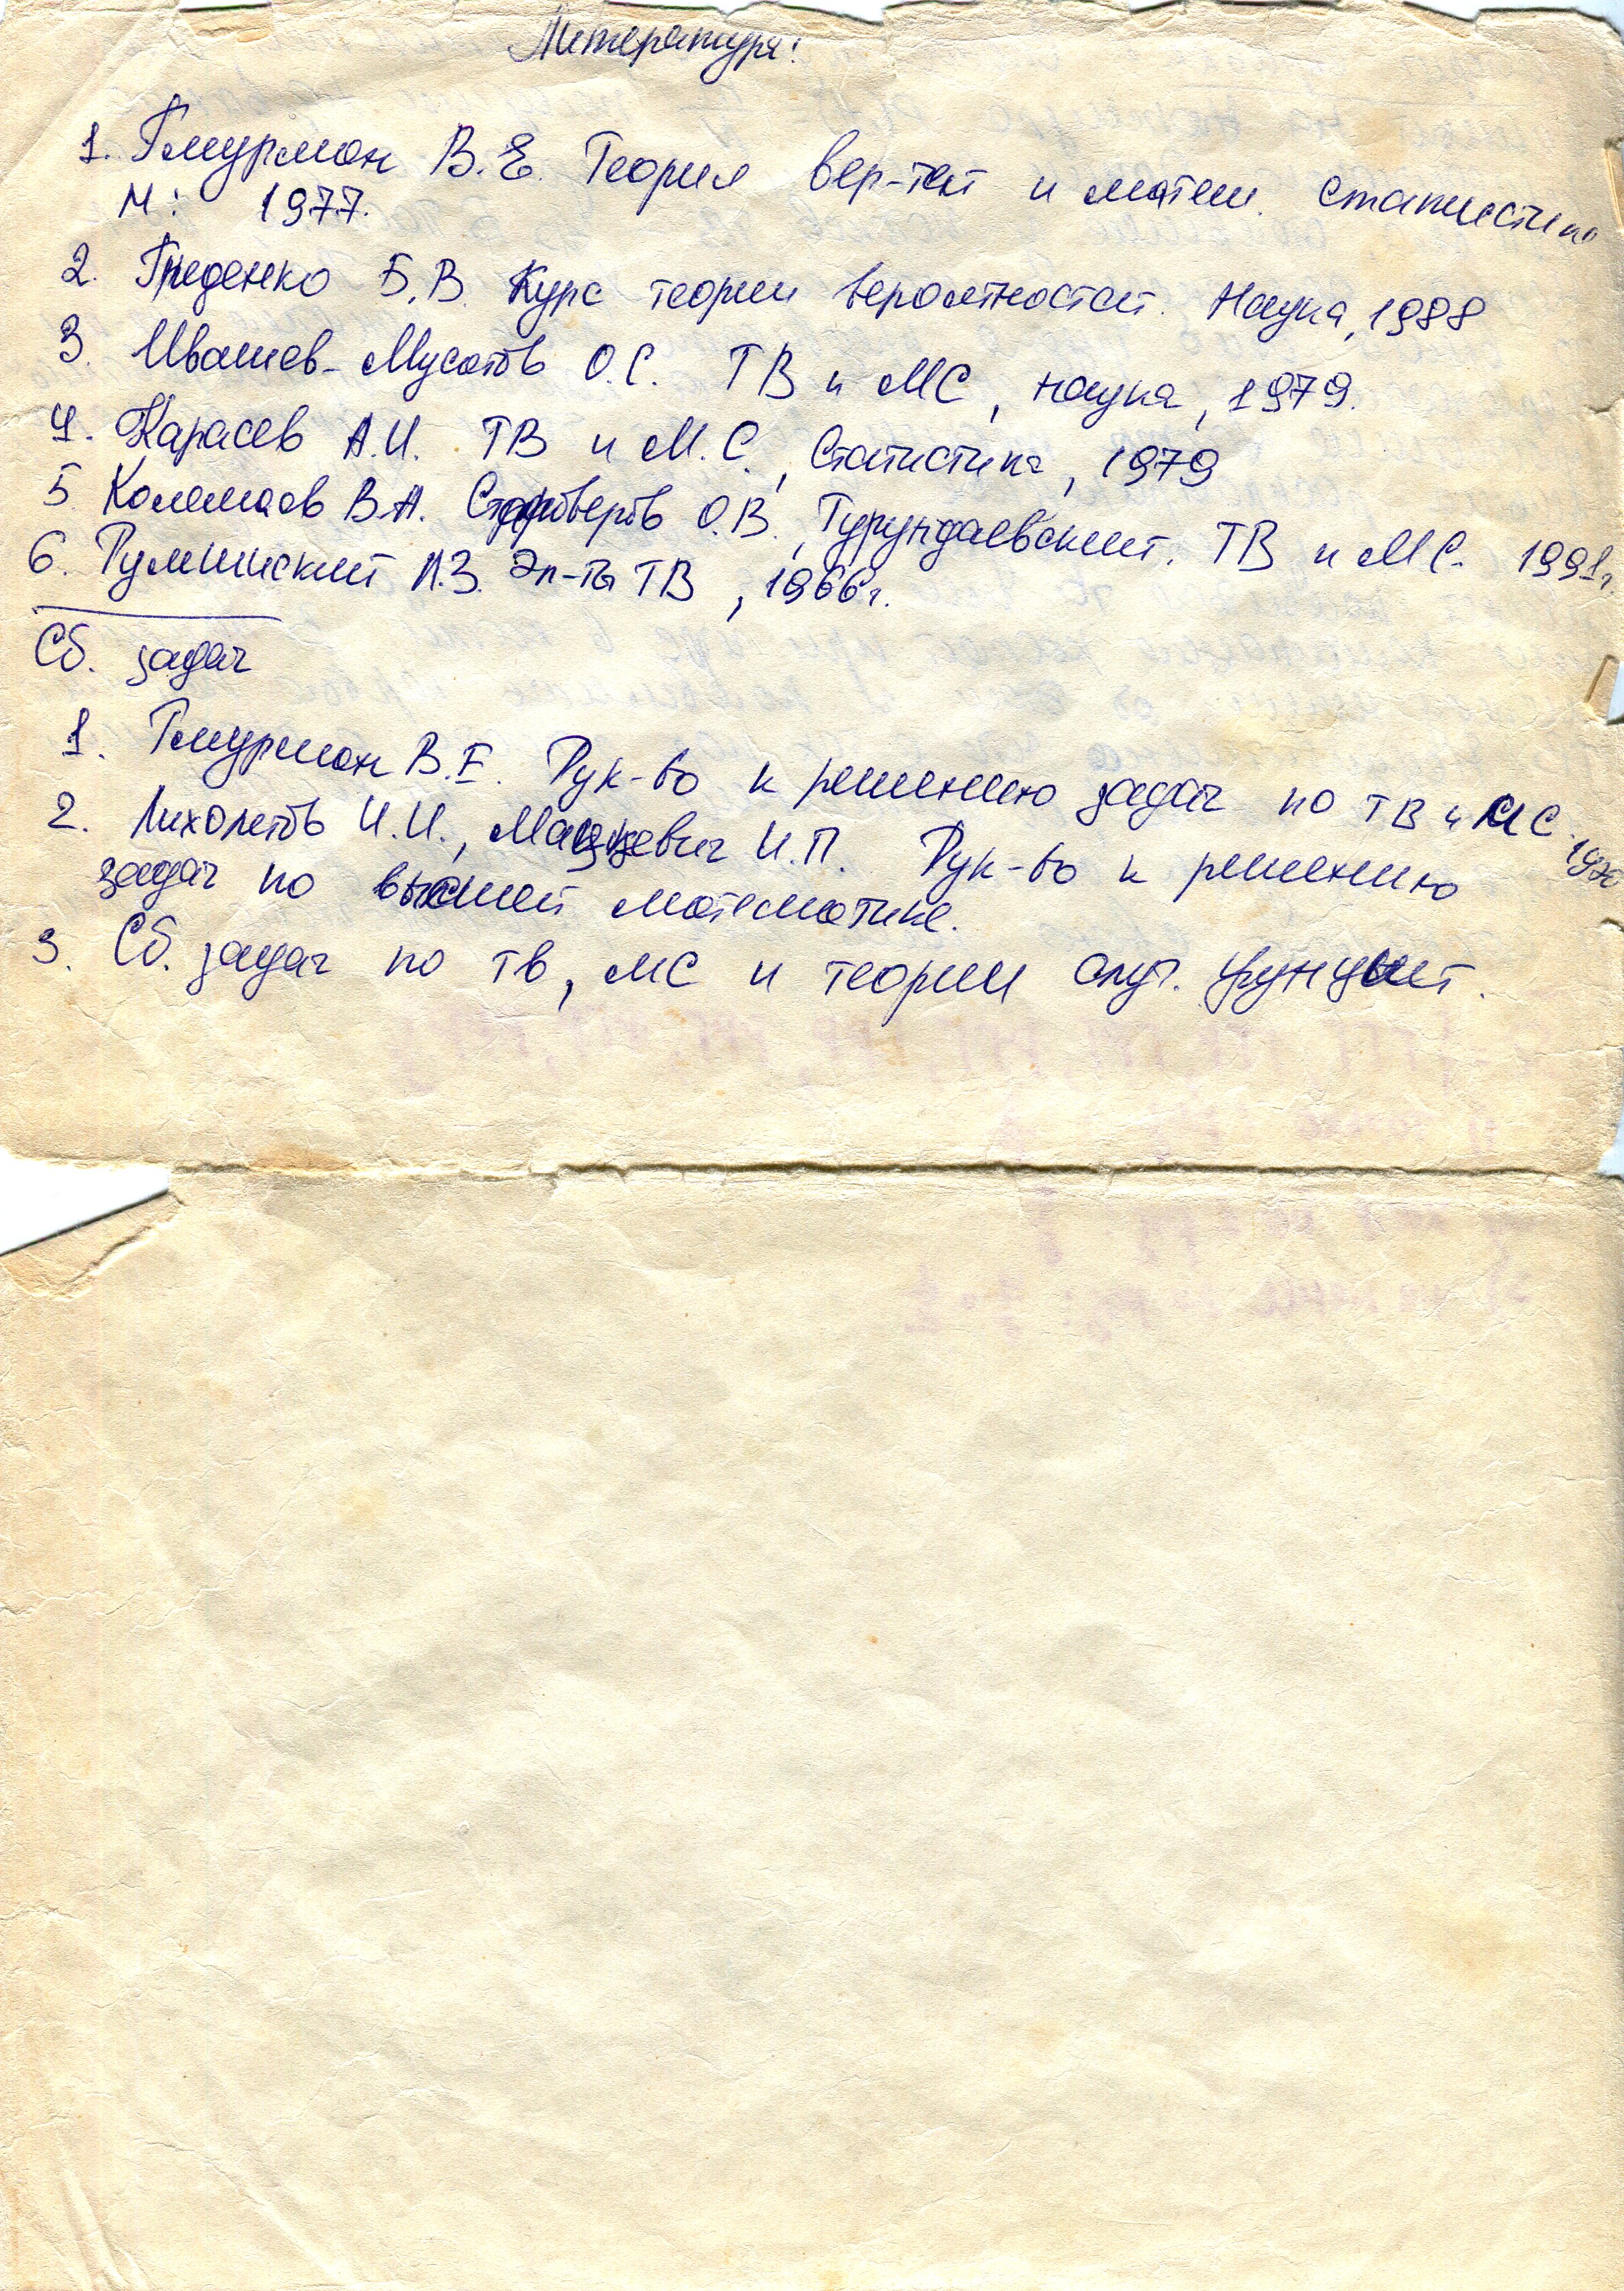 Литература:
1. Гмурман В.Е. Теория вер-тей и матем. статистика
М: 1977.
2. Гнеденко Б.В. Курс теории вероятностей. Наука, 1988
3. Ивашев-Мусатов О.С. ТВ и МС, наука, 1979.
4. Карасев А.И. ТВ и М.С., Статистика, 1979
5 Колемаев В.А. Староверов О.В., Турундаевский. ТВ и МС. 1991г.
6. Румшиский Л.З. Эл-ты ТВ, 1966г.
Сб. задач
1. Гмурман В.Е. Рук-во к решению задач по ТВ и МС.
2. Лихолетов И.И., Мацкевич И.П. Рук-во к решению
задач по высшей математике.
3. Сб. задач по тв, МС и теории случ. функций.